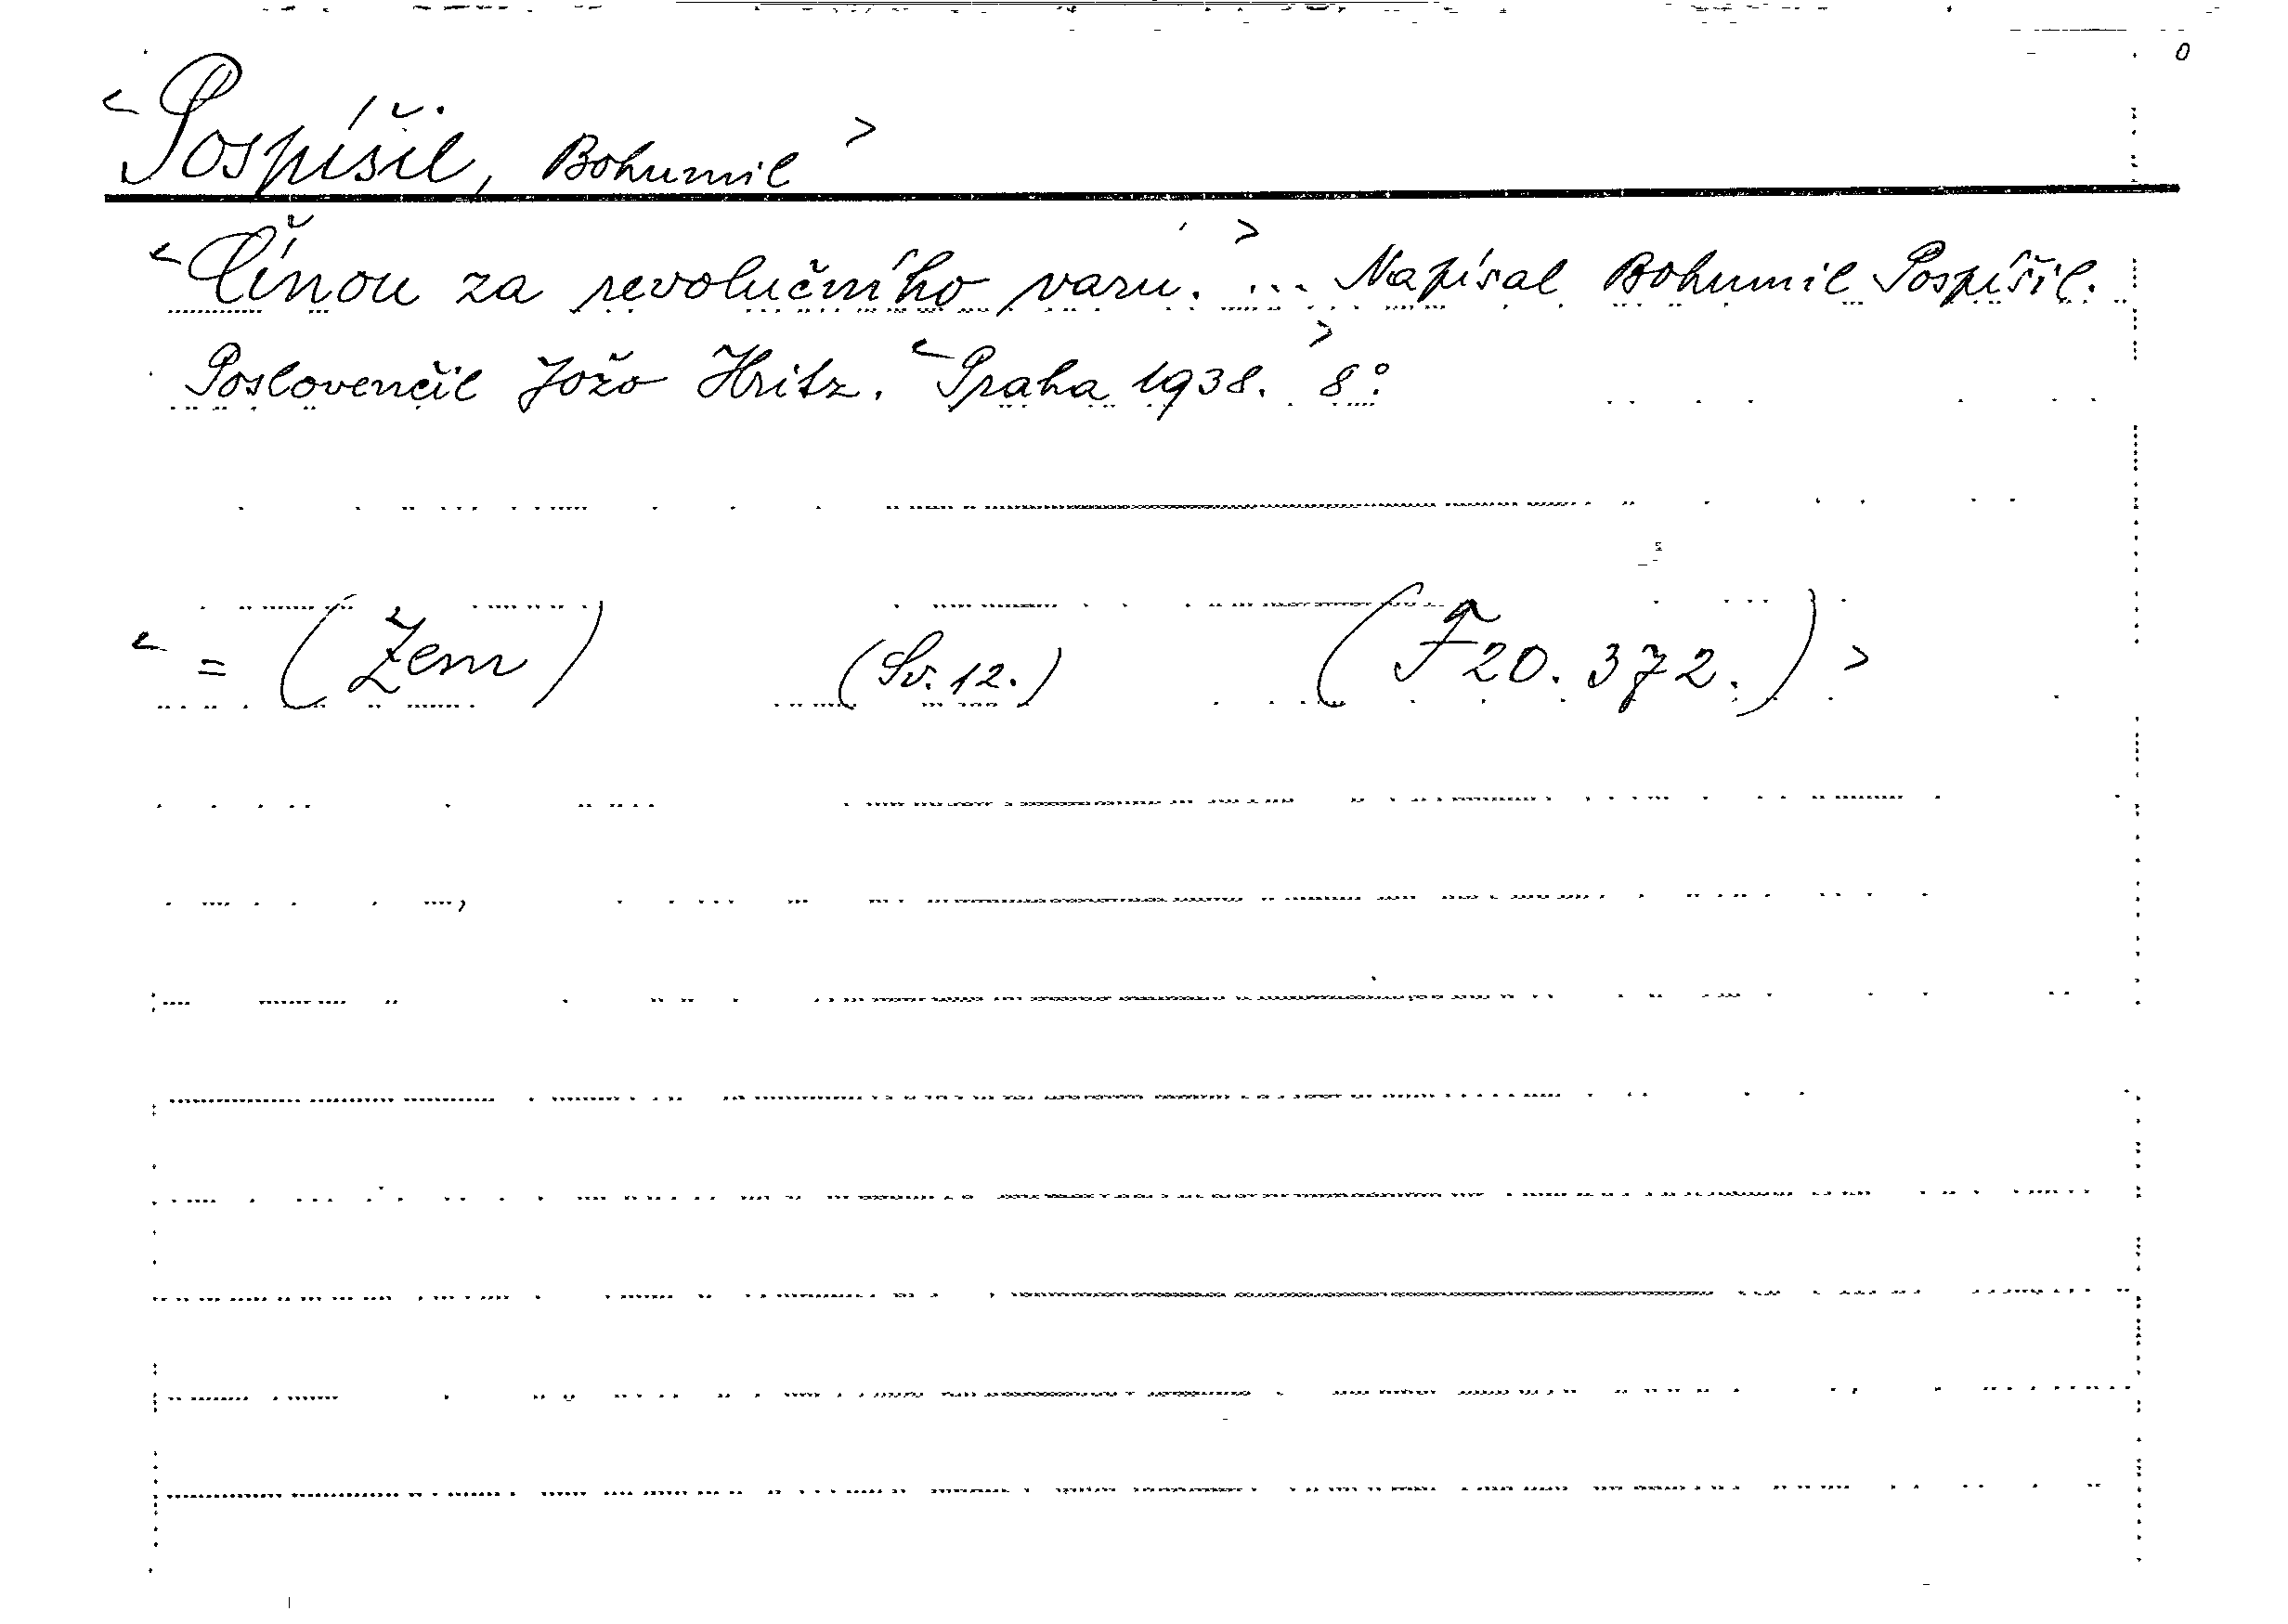 < Pospíšil, Bohumil >
< Čínou za revolučního varu. > ... Napísal Bohumil Pospíšil.
Poslovenčil Jožo Hritz. < Praha 1938. > 8°.
< = (Žem) (Sv. 12.) (F 20.372.) >